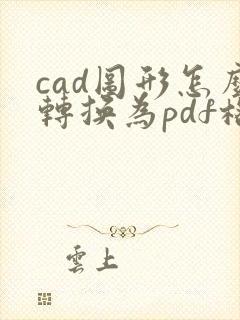 cad圖形怎麼
轉換為pdf格
雲上